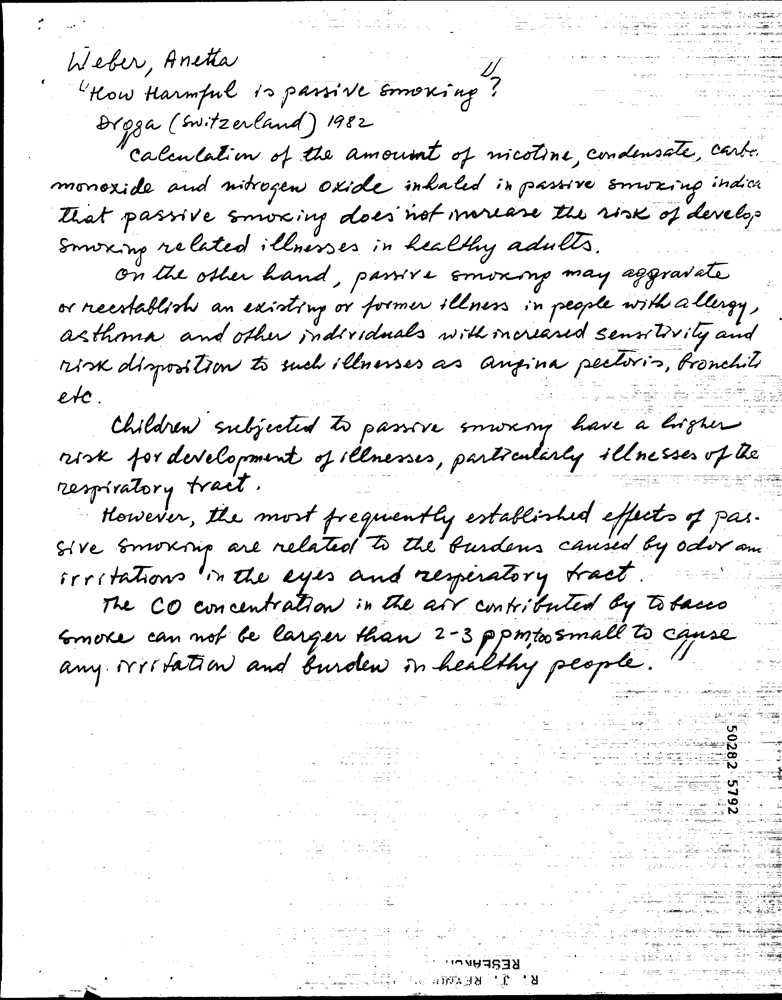 Weber, Anetta
"How Harmful is passive smoking"?
Drgga (Switzerland) 1982
"Calculation of the amount of nicotine, condensate, carbo
monoxide and nitrogen oxide inhaled in passive smoking indica
that passive smoking does not increase the risk of develop
smoking related illnesses in healthy adults.
On the other hand, passive smoking may aggravate
or reestablish an existing or former illness in people with allergy,
asthma and other individuals with increased sensitivity and
risk disposition to such illnesses as angina pectoris, bronchiti
etc.
Children subjected to passive smoking have a higher
risk for development of illnesses, particularly illnesses of the
respiratory tract.
However, the most frequently established effects of pas-
sive smoking are related to the burdens caused by odor an
irritations in the eyes and respiratory tract.
The CO concentration in the air contributed by tobacco
smoke can not be larger than 2-3 ppm, too small to cause
any irritation and burden in healthy people."
50282 5792
RESEARCH
R. J.